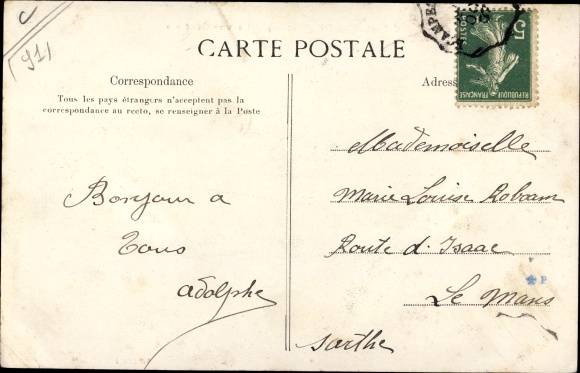 C
(91)
CARTE POSTALE
Correspondance
Tous les pays étrangers n'acceptent pas la
correspondance au recto, se renseigner à la Poste
Bonjour a
Tous
Adolphe
Adres
5
POSTES
REPUBLIQUE FRANÇAISE
Mademoiselle
Marie Louise Roboam
Route d'Isaac
Le Mans
Sarthe